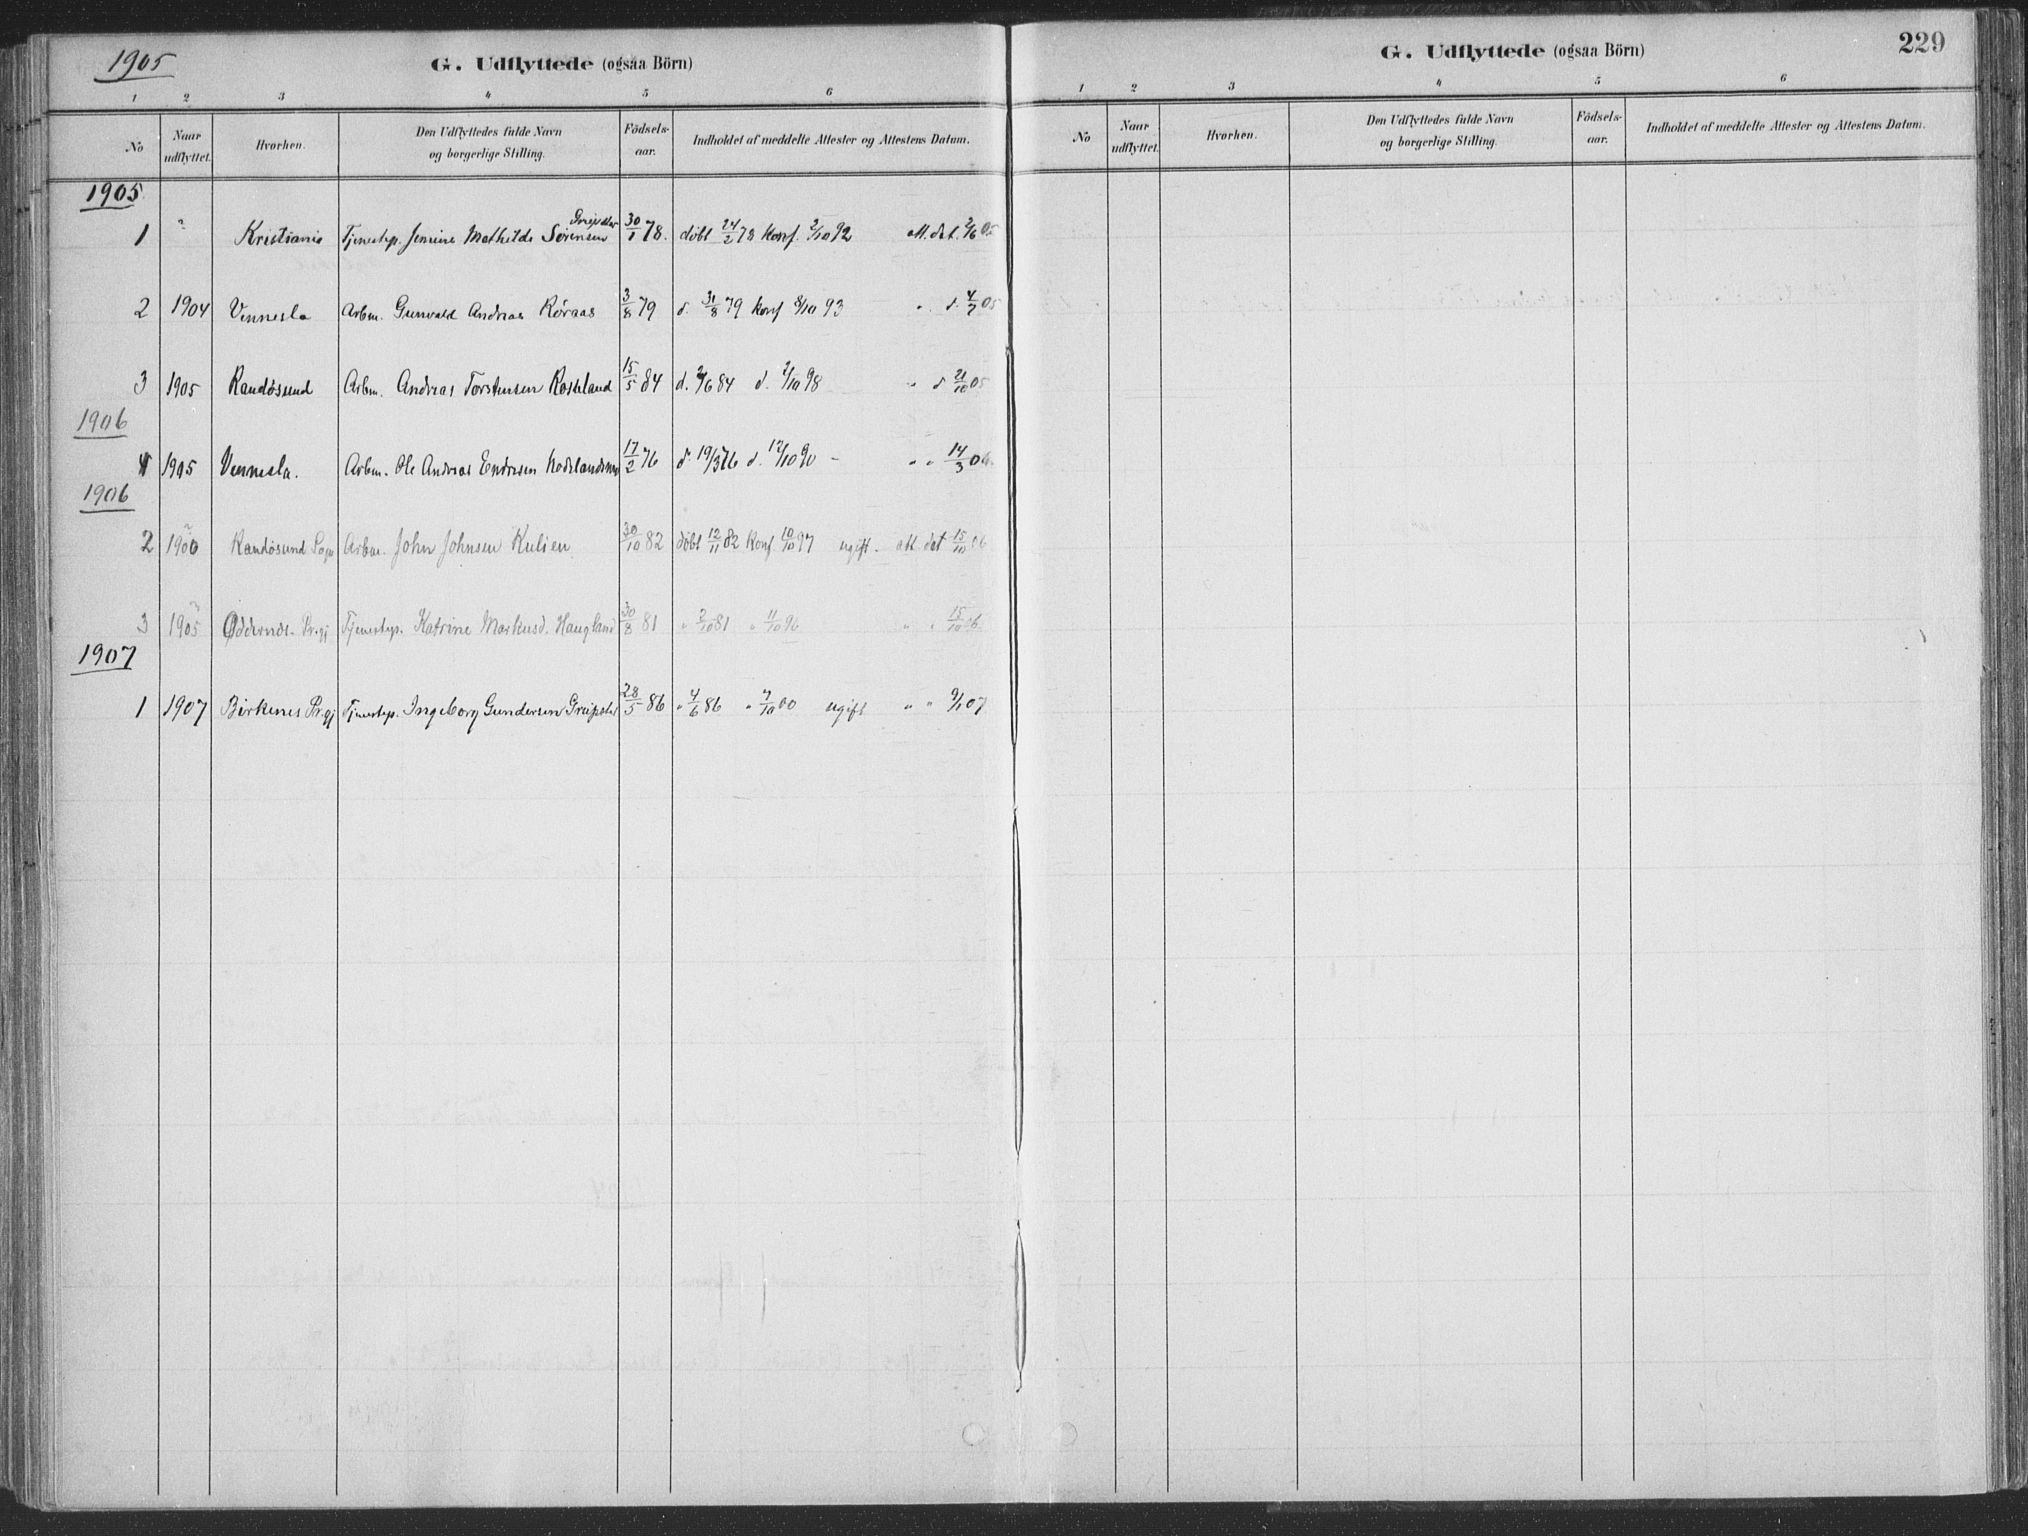 1905
G. Udflyttede (ogsaa Börn)
1 2 3 4 5 6
No
Naar udflyttet.
Hvorhen.
Den Udflyttedes fulde Navn og borgerlige Stilling.
Födsels-aar.
Indholdet af meddelte Attester og Attestens Datum.
1905
1 " Kristiania Tjenestep. Jensine Mathilde Sørensen 30/1 78. døbt 24/2 78 konf. 2/10 92 att. dat. 05
2 1904 Vennesla Arbm. Gunvald Andreas Røraas 3/8 79 d. 31/8 79 konf 8/10 93 " d. 4/7 05
3 1905 Randøsund Arbm. Andreas Torstensen Roseland 15/5 84 d. 84 d. 2/10 98 " d 21/10 05
1906
1905 Vennesla. Arbm. Ole Andreas Endresen 17/2 76 d 19/3 76 d. 12/10 90 - " " 14/3 06.
1906
2 Randøsund Sogn Arbm. John Johnsen Kulien 30/10 82 døbt 12/11 82 konf 10/10 97 ugift. att. dat 15/10 06
3 1905 Oddernes Prgj Tjenestep. Katrine Markusd. Haugland 30/8 81 " 2/10 81 " 11/10 96 " " 15/10 06
1907
1 1907 Birkenes Prgj Tjenestep. Ingeborg Gundersen Greipsted 28/5 86 " 4/6 86 " 7/10 00 ugift " " 9/1 07
G. Udflyttede (ogsaa Börn)
229
1 2 3 4 5 6
No
Naar udflyttet.
Hvorhen.
Den Udflyttedes fulde Navn og borgerlige Stilling.
Födsels-aar.
Indholdet af meddelte Attester og Attestens Datum.